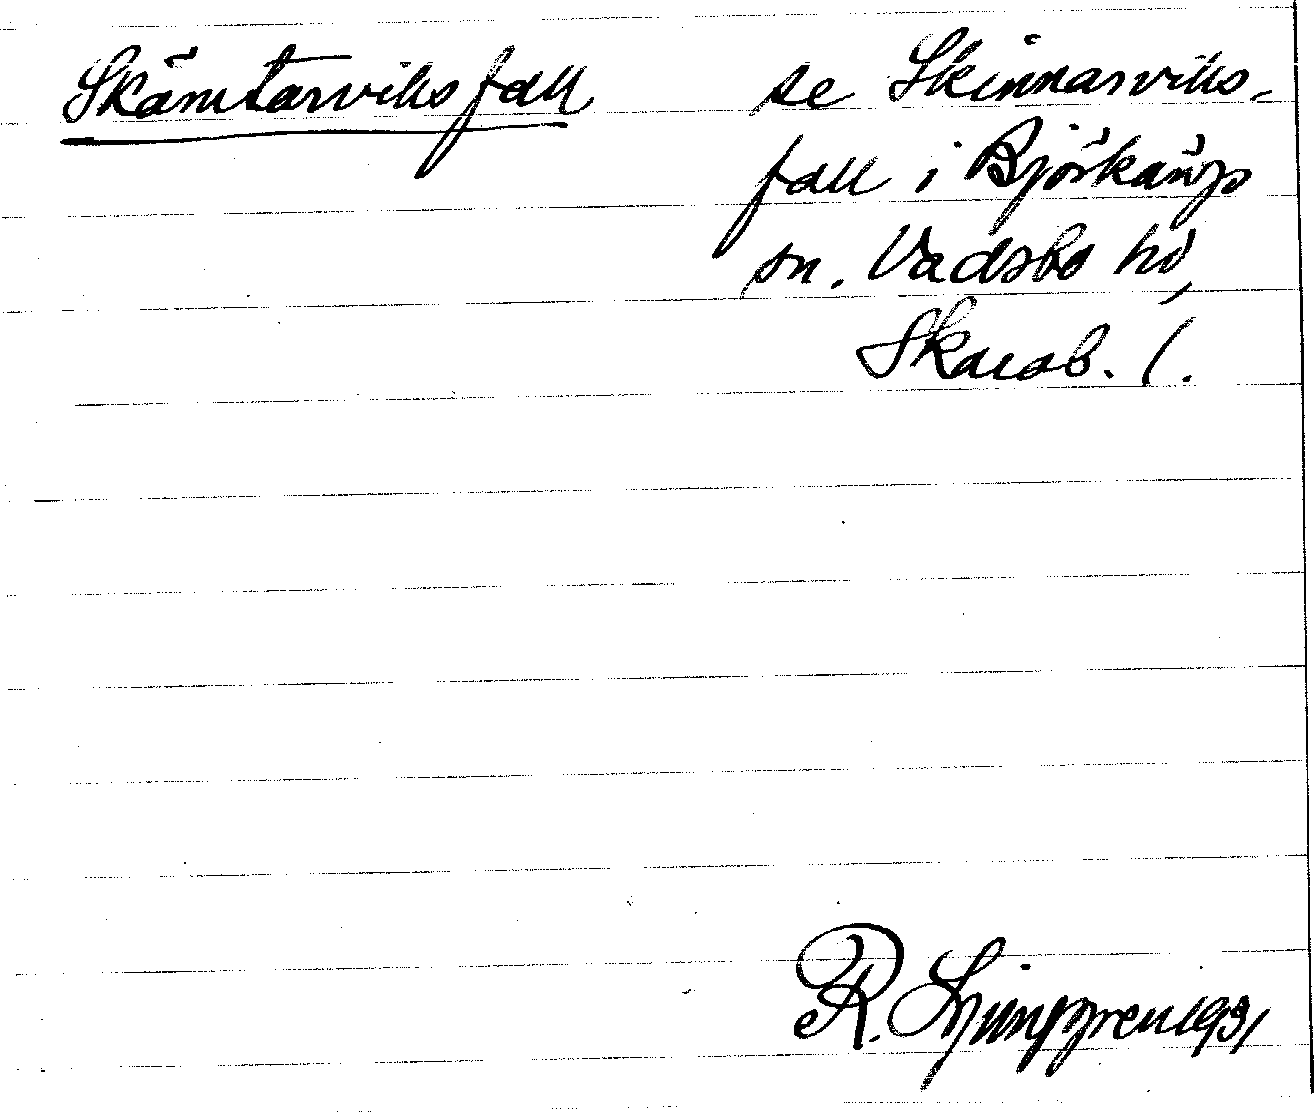 Skämtarviksfall se Skinnarviks-
fall i Björkängs
sn. Vadsbo hd,
Skarab. l.
R. Ljunggren 1931